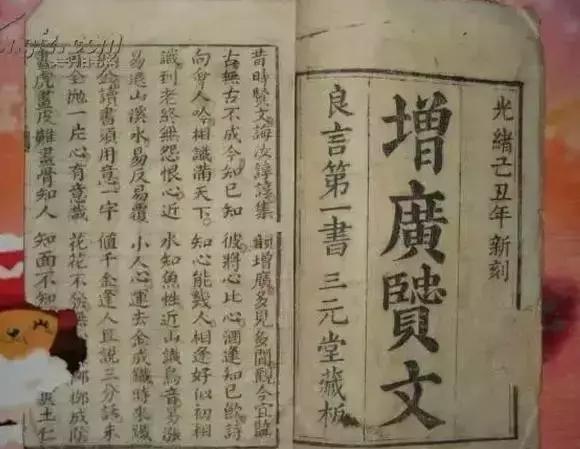 光緒己丑年新刻
增廣賢文
良言第一書 三元堂藏板
昔時賢文誨汝諄諄集 韻增廣多見多聞觀今宜鑑
古無古不成今知己知 彼將心比心酒逢知己飲詩
向會人吟相識滿天下 知心能幾人相逢好似初相
識到老終無怨恨心近 水知魚性近山識鳥音易漲
易退山溪水易反易覆 小人心運去金成鐵時來鐵
金讀書須用意一字 值千金逢人且說三分話未
全抛一片心有意栽 花花不發無 柳成陰
畫虎畫皮難畫骨知人 知面不知 土仁